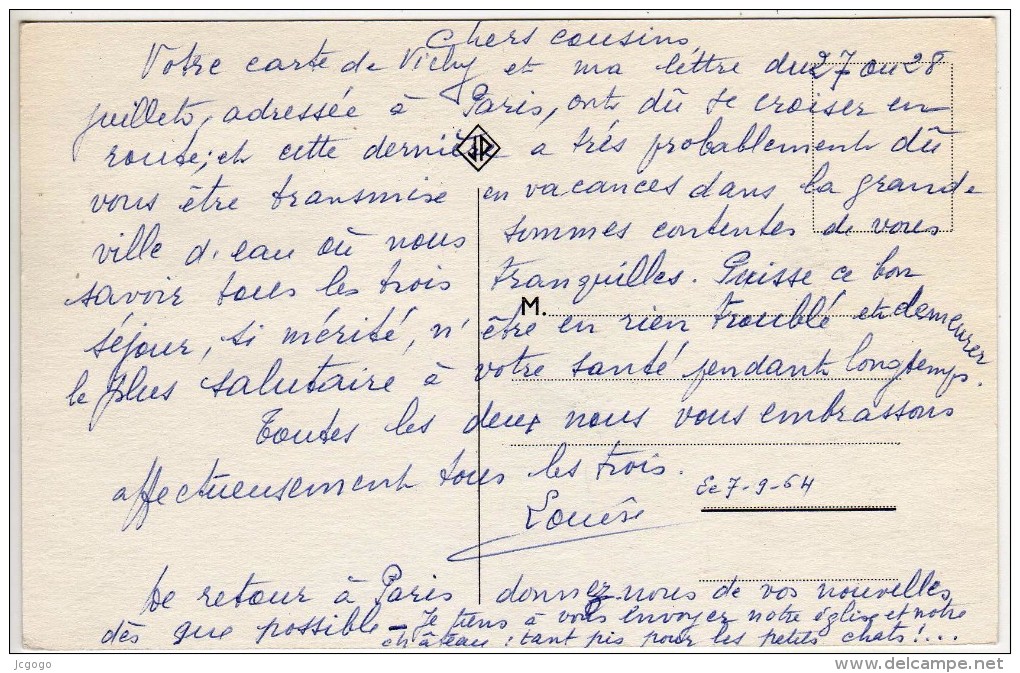 Chers cousins,
Votre carte de Vichy et ma lettre du 27 ou 28
juillet, adressée à Paris, ont dû se croiser en
route; et cette dernière a très probablement dû
vous être transmise en vacances dans la grande
ville d'eau où nous sommes contentes de vous
savoir tous les trois tranquilles. Puisse ce bon
M.
séjour, si mérité, n'être en rien troublé et demeurer
le plus salutaire à votre santé pendant longtemps.
Toutes les deux nous vous embrassons
affectueusement tous les trois.
Ec 7-9-64
Louise
De retour à Paris donnez-nous de vos nouvelles
dès que possible - Je tiens à vous envoyer notre église et notre
château : tant pis pour les petits chats !...
Jcgogo
www.delcampe.net